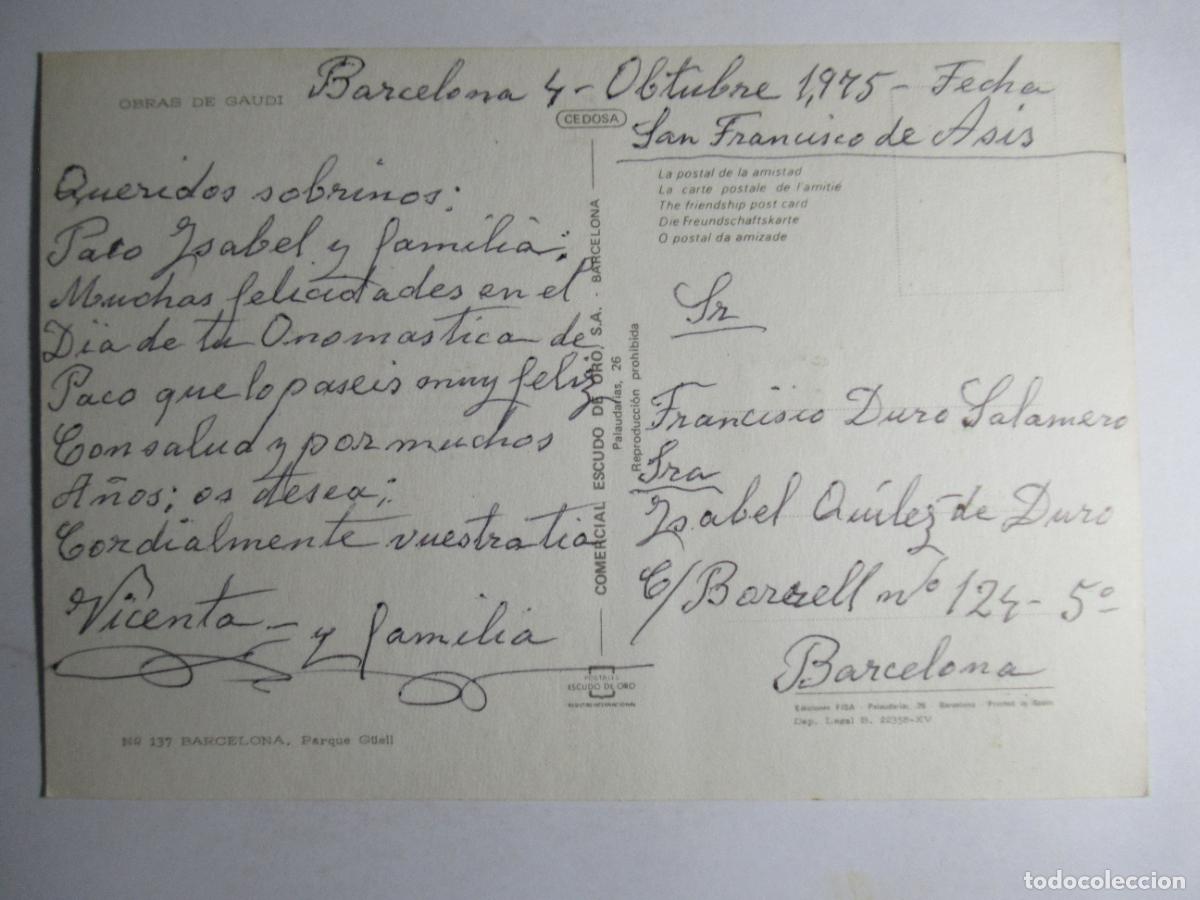 OBRAS DE GAUDI
Barcelona 4 - Obtubre 1,975 - Fecha
San Francisco de Asis
CEDOSA
Queridos sobrinos:
Paco Ysabel y familia;
Muchas felicidades en el
Dia de tu Onomastica de
Paco que lo paseis muy feliz
Con salud y por muchos
Años; os desea;
Cordialmente vuestra tia
Vicenta - y familia
Nº 137 BARCELONA, Parque Güell
COMERCIAL ESCUDO DE ORO, S.A. - BARCELONA
Palaudarias, 26
Reproducción prohibida
POSTALES
ESCUDO DE ORO
REGISTRO INTERNACIONAL
La postal de la amistad
La carte postale de l'amitié
The friendship post card
Die Freundschaftskarte
O postal da amizade
Sr
Francisco Duro Salamero
Sra
Ysabel Quílez de Duro
C/ Borrell nº 124 - 5º
Barcelona
Ediciones FISA - Palaudarias, 26 - Barcelona - Printed in Spain
Dep. Legal B. 22358-XV
todocoleccion